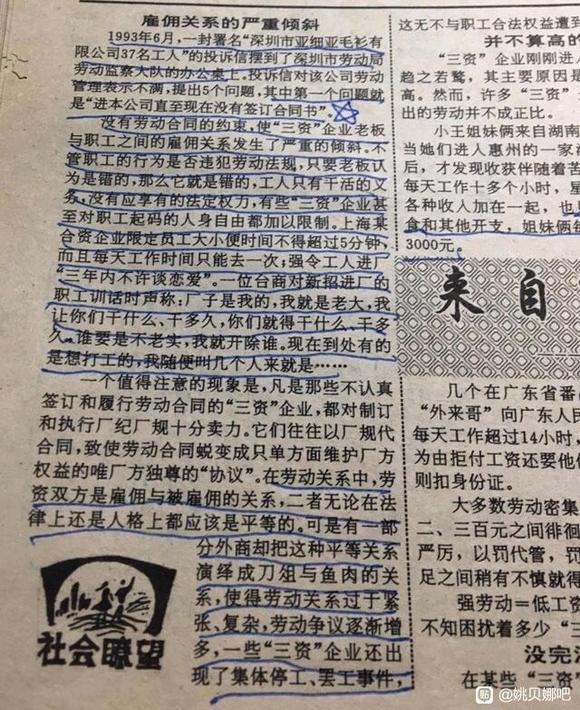 雇佣关系的严重倾斜
1993年6月，一封署名“深圳市亚细亚毛衫有
限公司37名工人”的投诉信摆到了深圳市劳动局
劳动监察大队的办公桌上。投诉信对该公司劳动
管理表示不满，提出5个问题，其中第一个问题就
是“进本公司直至现在没有签订合同书”。
没有劳动合同的约束，使“三资”企业老板
与职工之间的雇佣关系发生了严重的倾斜。不
管职工的行为是否违犯劳动法规，只要老板认
为是错的，那么它就是错的，工人只有干活的义
务，没有应享有的法定权力，有些“三资”企业甚
至对职工起码的人身自由都加以限制。上海某
合资企业限定员工大小便时间不得超过5分钟，
而且每天工作时间只能去一次；强令工人进厂
“三年内不许谈恋爱”。一位台商对新招进厂的
职工训话时声称：厂子是我的，我就是老大，我
让你们干什么、干多久，你们就得干什么、干多
久。谁要是不老实，我就开除谁。现在到处有的
是想打工的，我随便叫几个人来就是……
一个值得注意的现象是，凡是那些不认真
签订和履行劳动合同的“三资”企业，都对制订
和执行厂纪厂规十分卖力。它们往往以厂规代
合同，致使劳动合同蜕变成只单方面维护厂方
权益的唯厂方独尊的“协议”。在劳动关系中，劳
资双方是雇佣与被雇佣的关系，二者无论在法
律上还是人格上都应该是平等的。可是有一部
分外商却把这种平等关系
演绎成刀俎与鱼肉的关
系，使得劳动关系过于紧
张、复杂，劳动争议逐渐增
多，一些“三资”企业还出
现了集体停工、罢工事件，
社会瞭望
这无不与职工合法权益遭到
并不算高的
“三资”企业刚刚进入
趋之若鹜，其主要原因是
高。然而，许多“三资”企
出的劳动并不成正比。
小王姐妹俩来自湖南
当她们进入惠州的一家
后，才发现收获伴随着苦
每天工作十多个小时，星
各种收入加在一起，也
食和其他开支，姐妹俩每
3000元。
来自
几个在广东省番
“外来哥”向广东人民
每天工作超过14小时，
为由拒付工资还要他
则扣身份证。
大多数劳动密集
二、三百元之间徘徊
严厉，以罚代管，罚
足之间稍有不慎就得
强劳动＝低工资
不知困扰着多少“三
没完没
在某些“三资”
贴 @姚贝娜吧